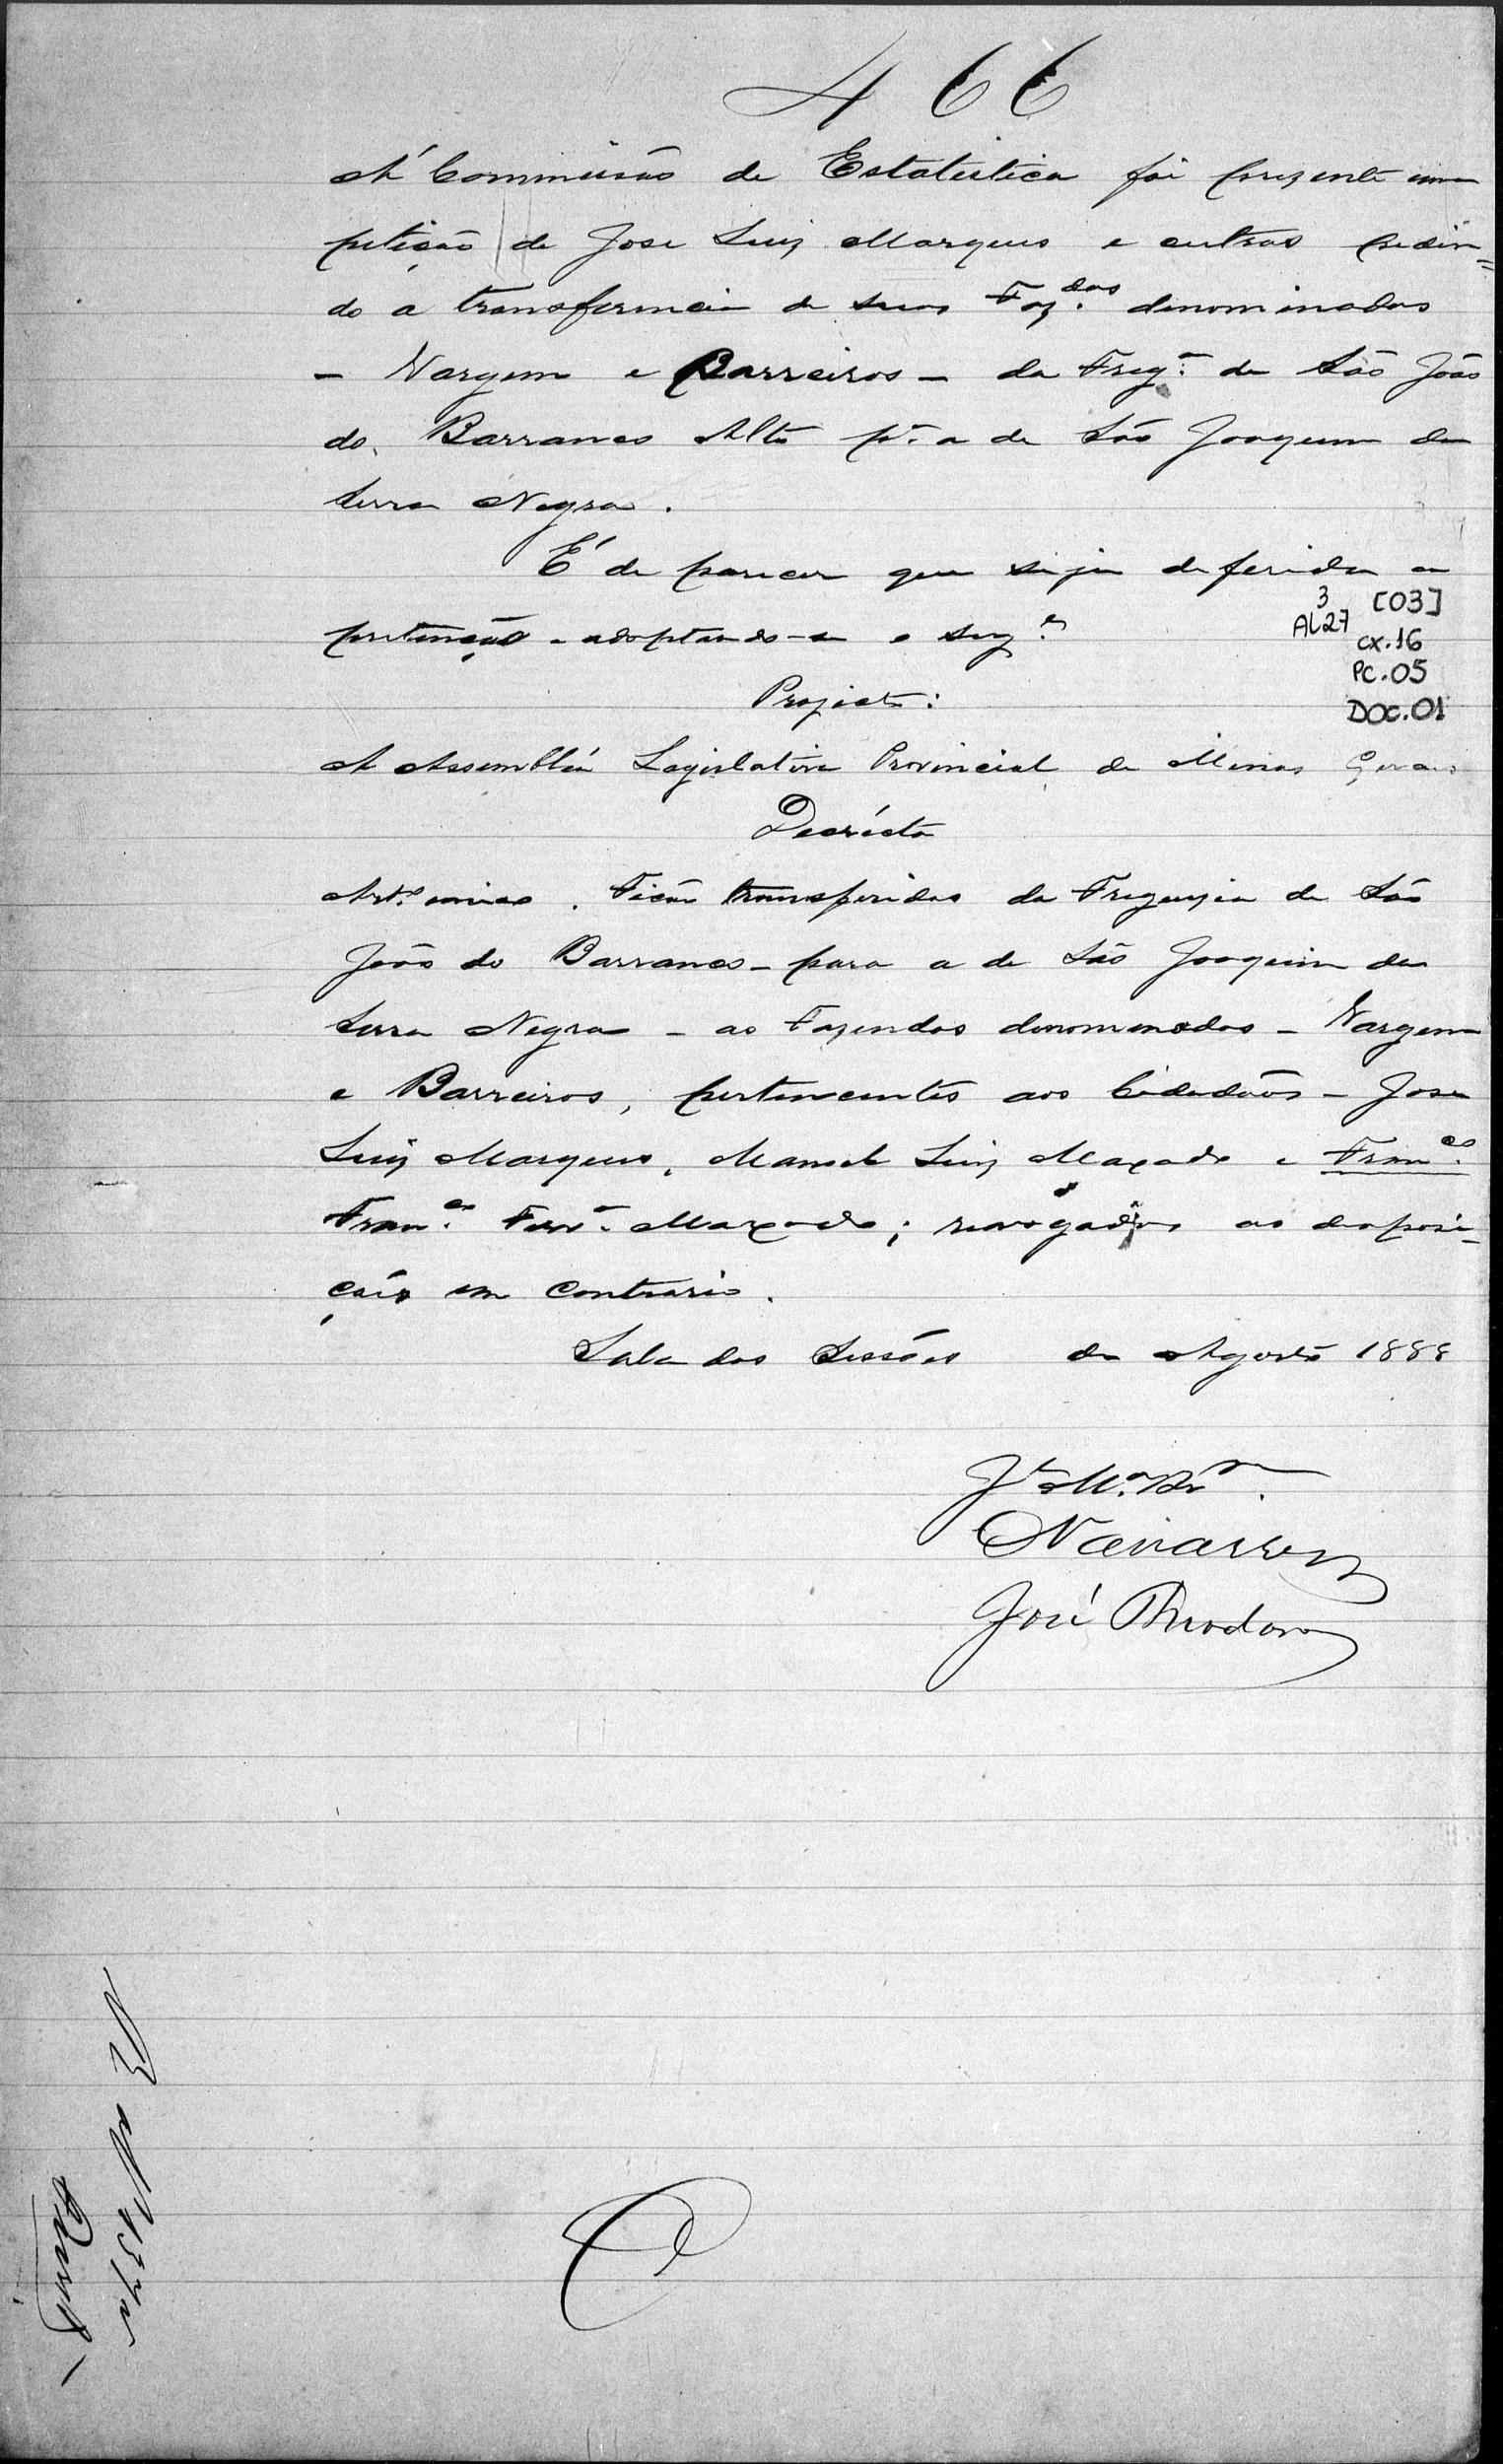 466
Á Commissão de Estatistica foi prezente uma
petição de Jose Luiz Marques e outros pedin=
do a transferencia de suas Faz.das denominadas
- Vargem e Barreiros - da Freg.a de São João
do Barranco Alto p.a a de São Joaquim da
Serra Negra.
É de parecer que seja deferida a
pretenção - adoptando-se o seg.e
3 [03]
AL27
cx.16
PC.05
DOC.01
Projecto:
A Assembléa Legislativa Provincial de Minas Geraes
Decréta
Art.o unico. Ficão transferidas da Freguezia de São
João do Barranco - para a de São Joaquim da
Serra Negra - as Fazendas denominadas - Vargem
e Barreiros, pertencentes aos Cidadãos - Jose
Luiz Marques, Manoel Luiz Maxado e Fran.co
Fran.co Ferr.a Maxado; revogadas as disposi-
ções em contrario.
Sala das Sessões de Agosto 1888
Navarro
José Theodoro